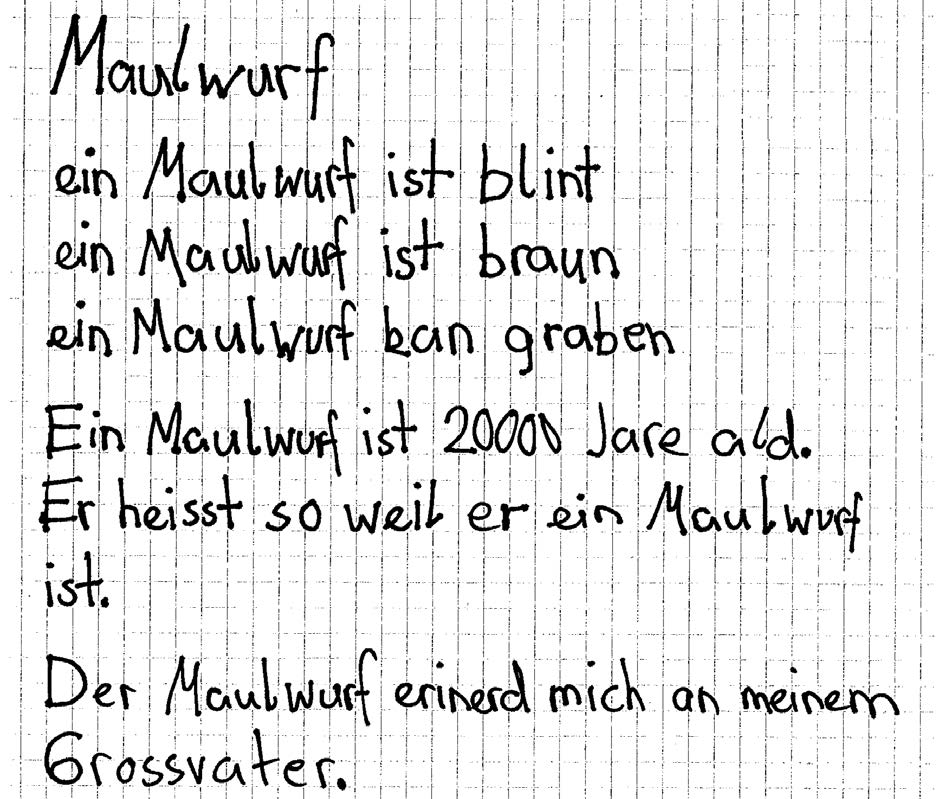 Maulwurf
ein Maulwurf ist blint
ein Maulwurf ist braun
ein Maulwurf kan graben
Ein Maulwurf ist 20000 Jare ald.
Er heisst so weil er ein Maulwurf
ist.
Der Maulwurf erinerd mich an meinem
Grossvater.